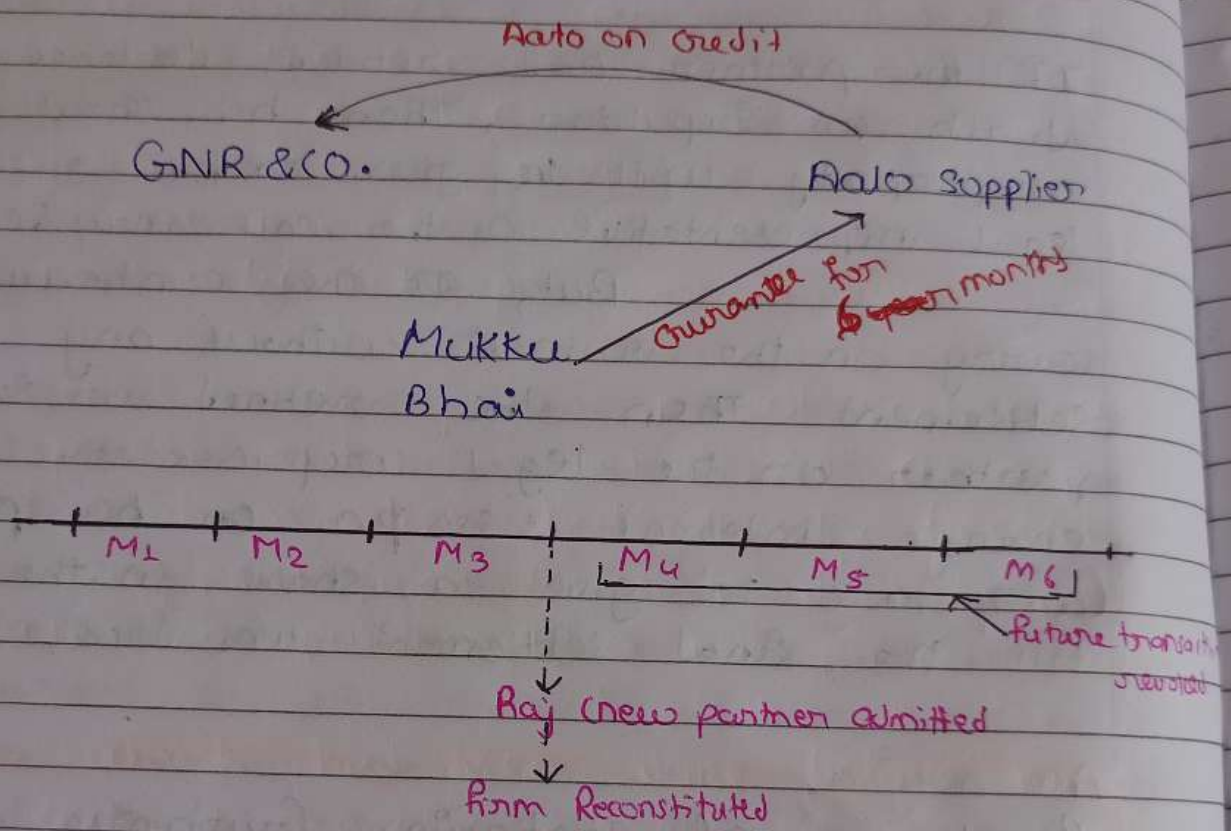 Aalo on credit
GNR & CO.
Aalo supplier
Gurantee for
6 months
Mukku
Bhai
M1 M2 M3 M4 M5 M6
future transact
revoked
Raj (new partner admitted
firm Reconstituted